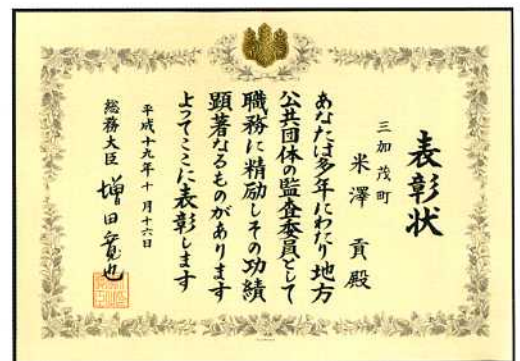 表彰状
三加茂町
米澤 貢殿
あなたは多年にわたり地方
公共団体の監査委員として
職務に精励しその功績
顕著なるものがあります
よってここに表彰します
平成十九年十月十六日
総務大臣 増田寛也